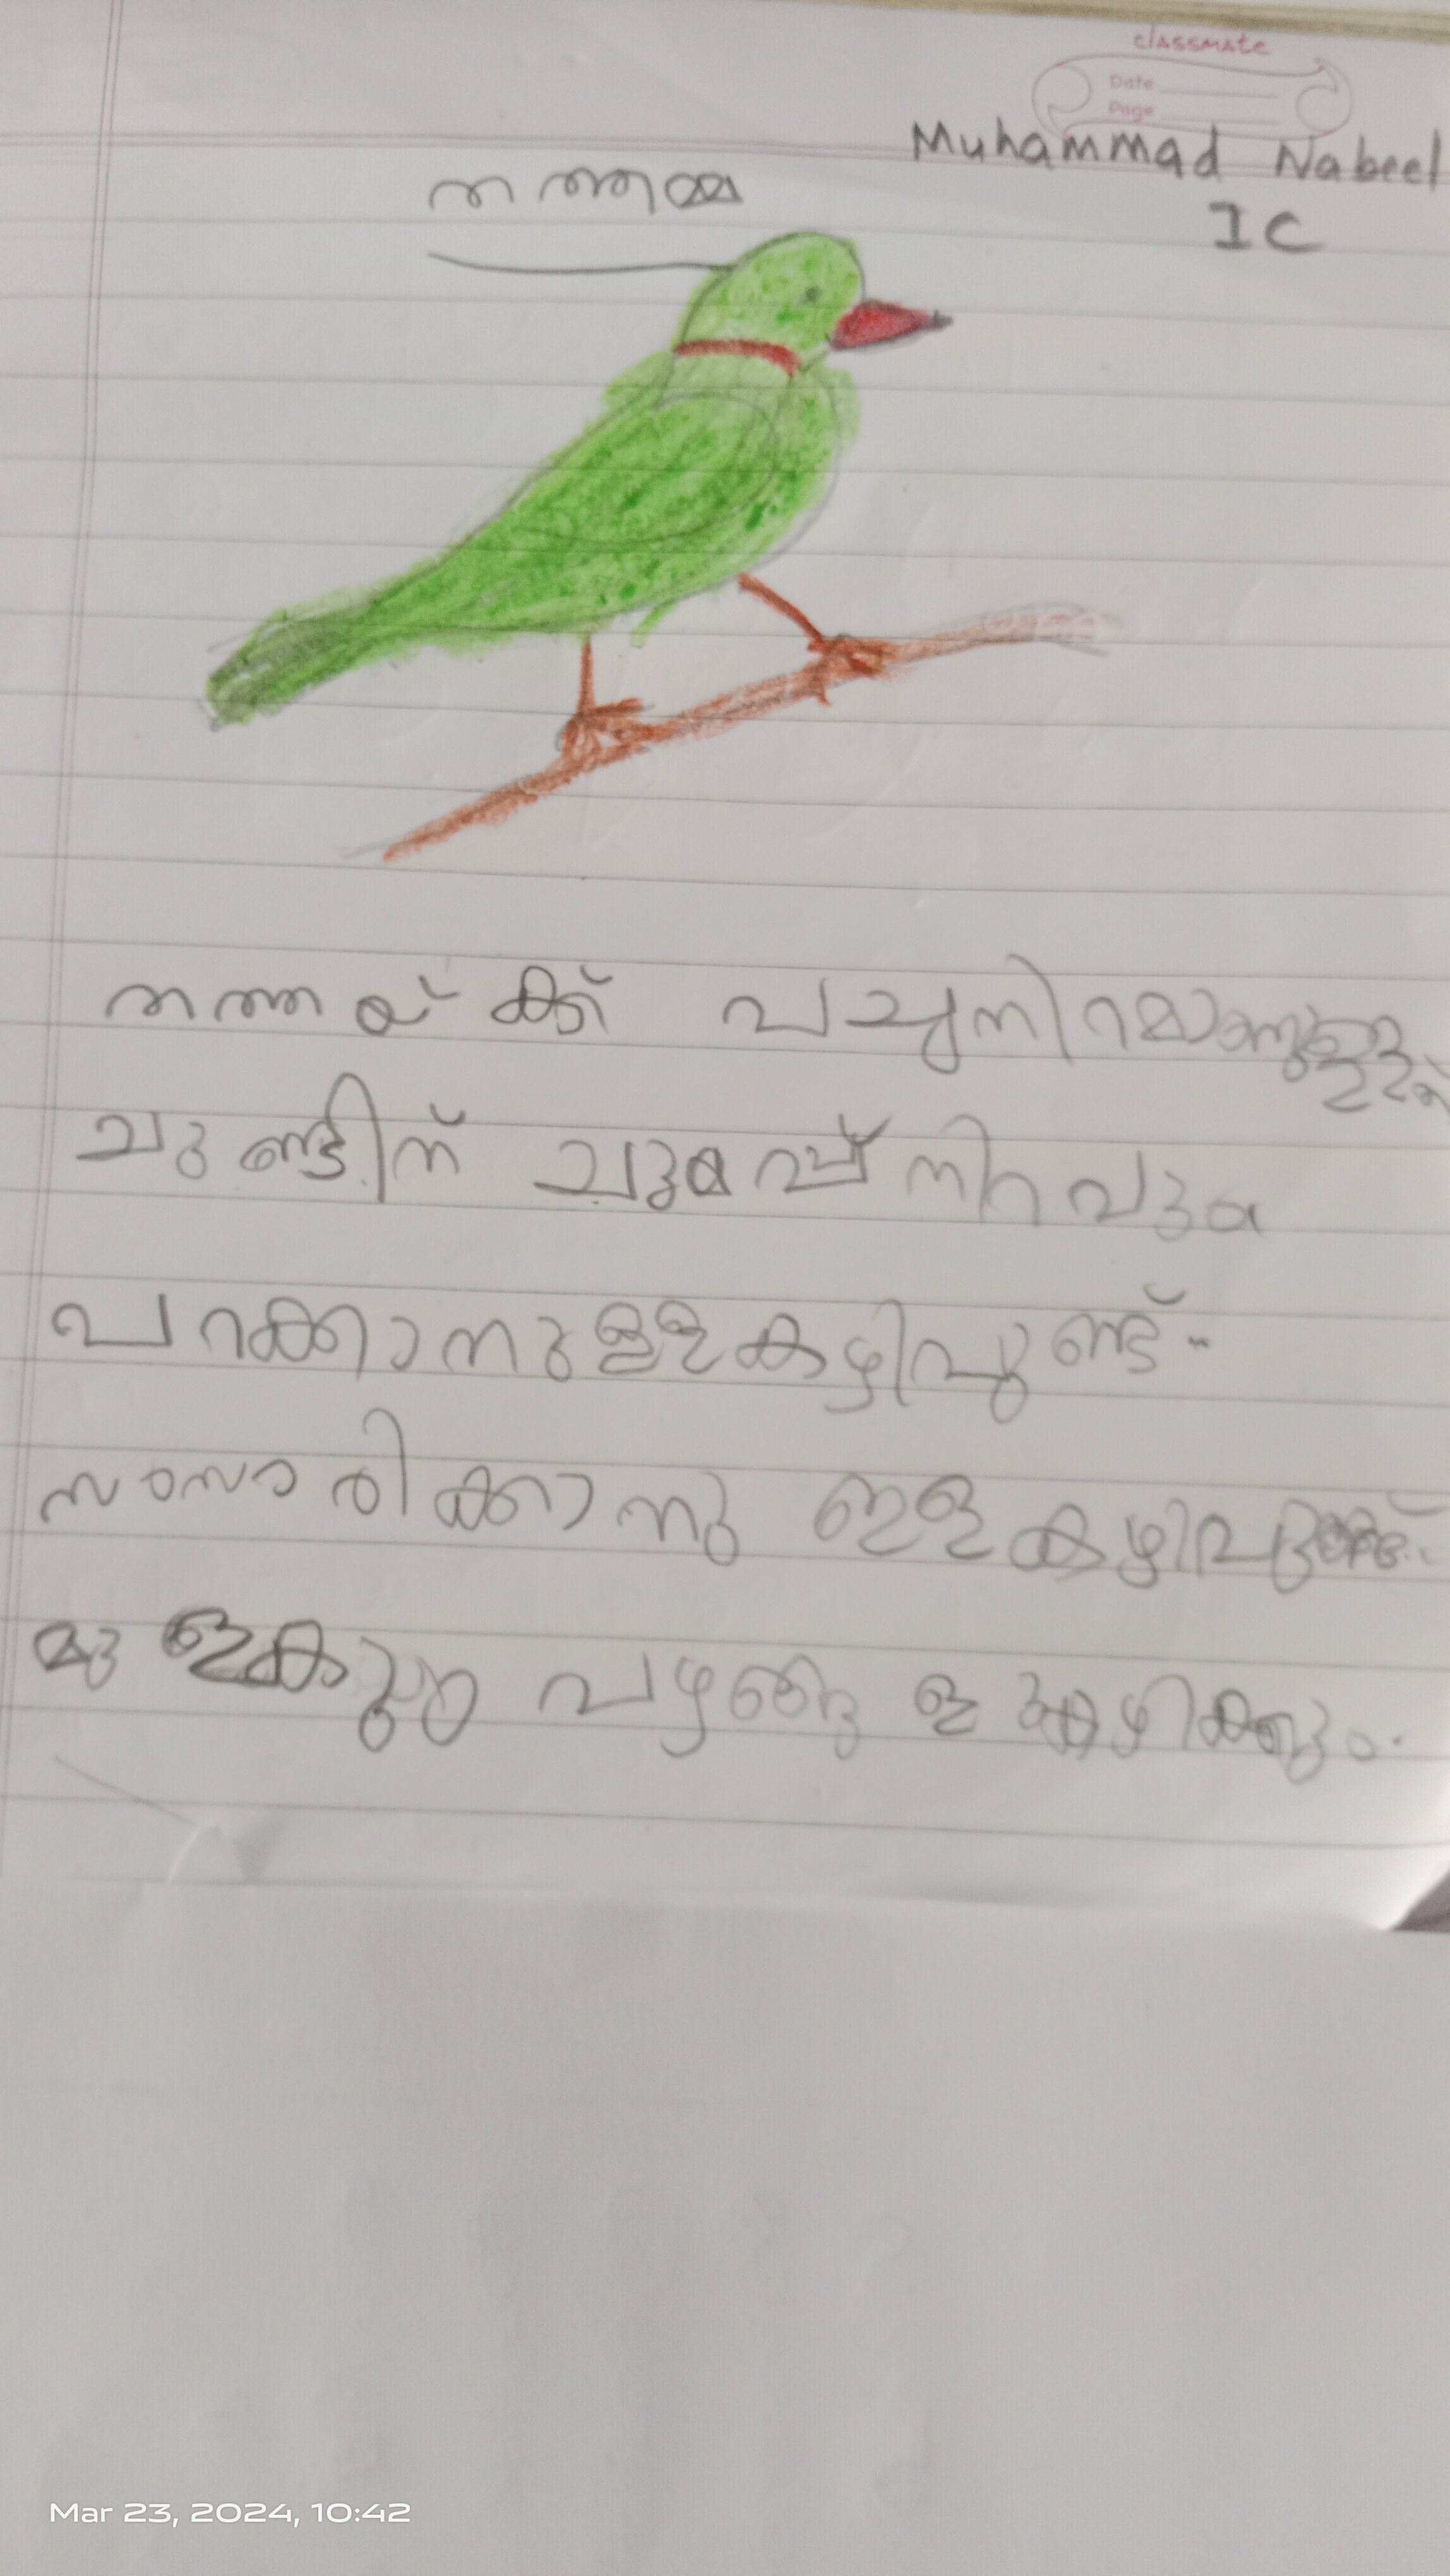 classmate
Date
Page
Muhammad Nabeel
I C
തത്തമ്മ
തത്തയ്ക്ക് പച്ചനിറമാണുള്ളത്
ചുണ്ടിന് ചുമപ്പ് നിറവും
പറക്കാനുള്ളകഴിവുണ്ട്
സംസാരിക്കാനു ള്ളകഴിവുണ്ട്.
മുളകും പഴങ്ങളുംകഴിക്കും.
Mar 23, 2024, 10:42